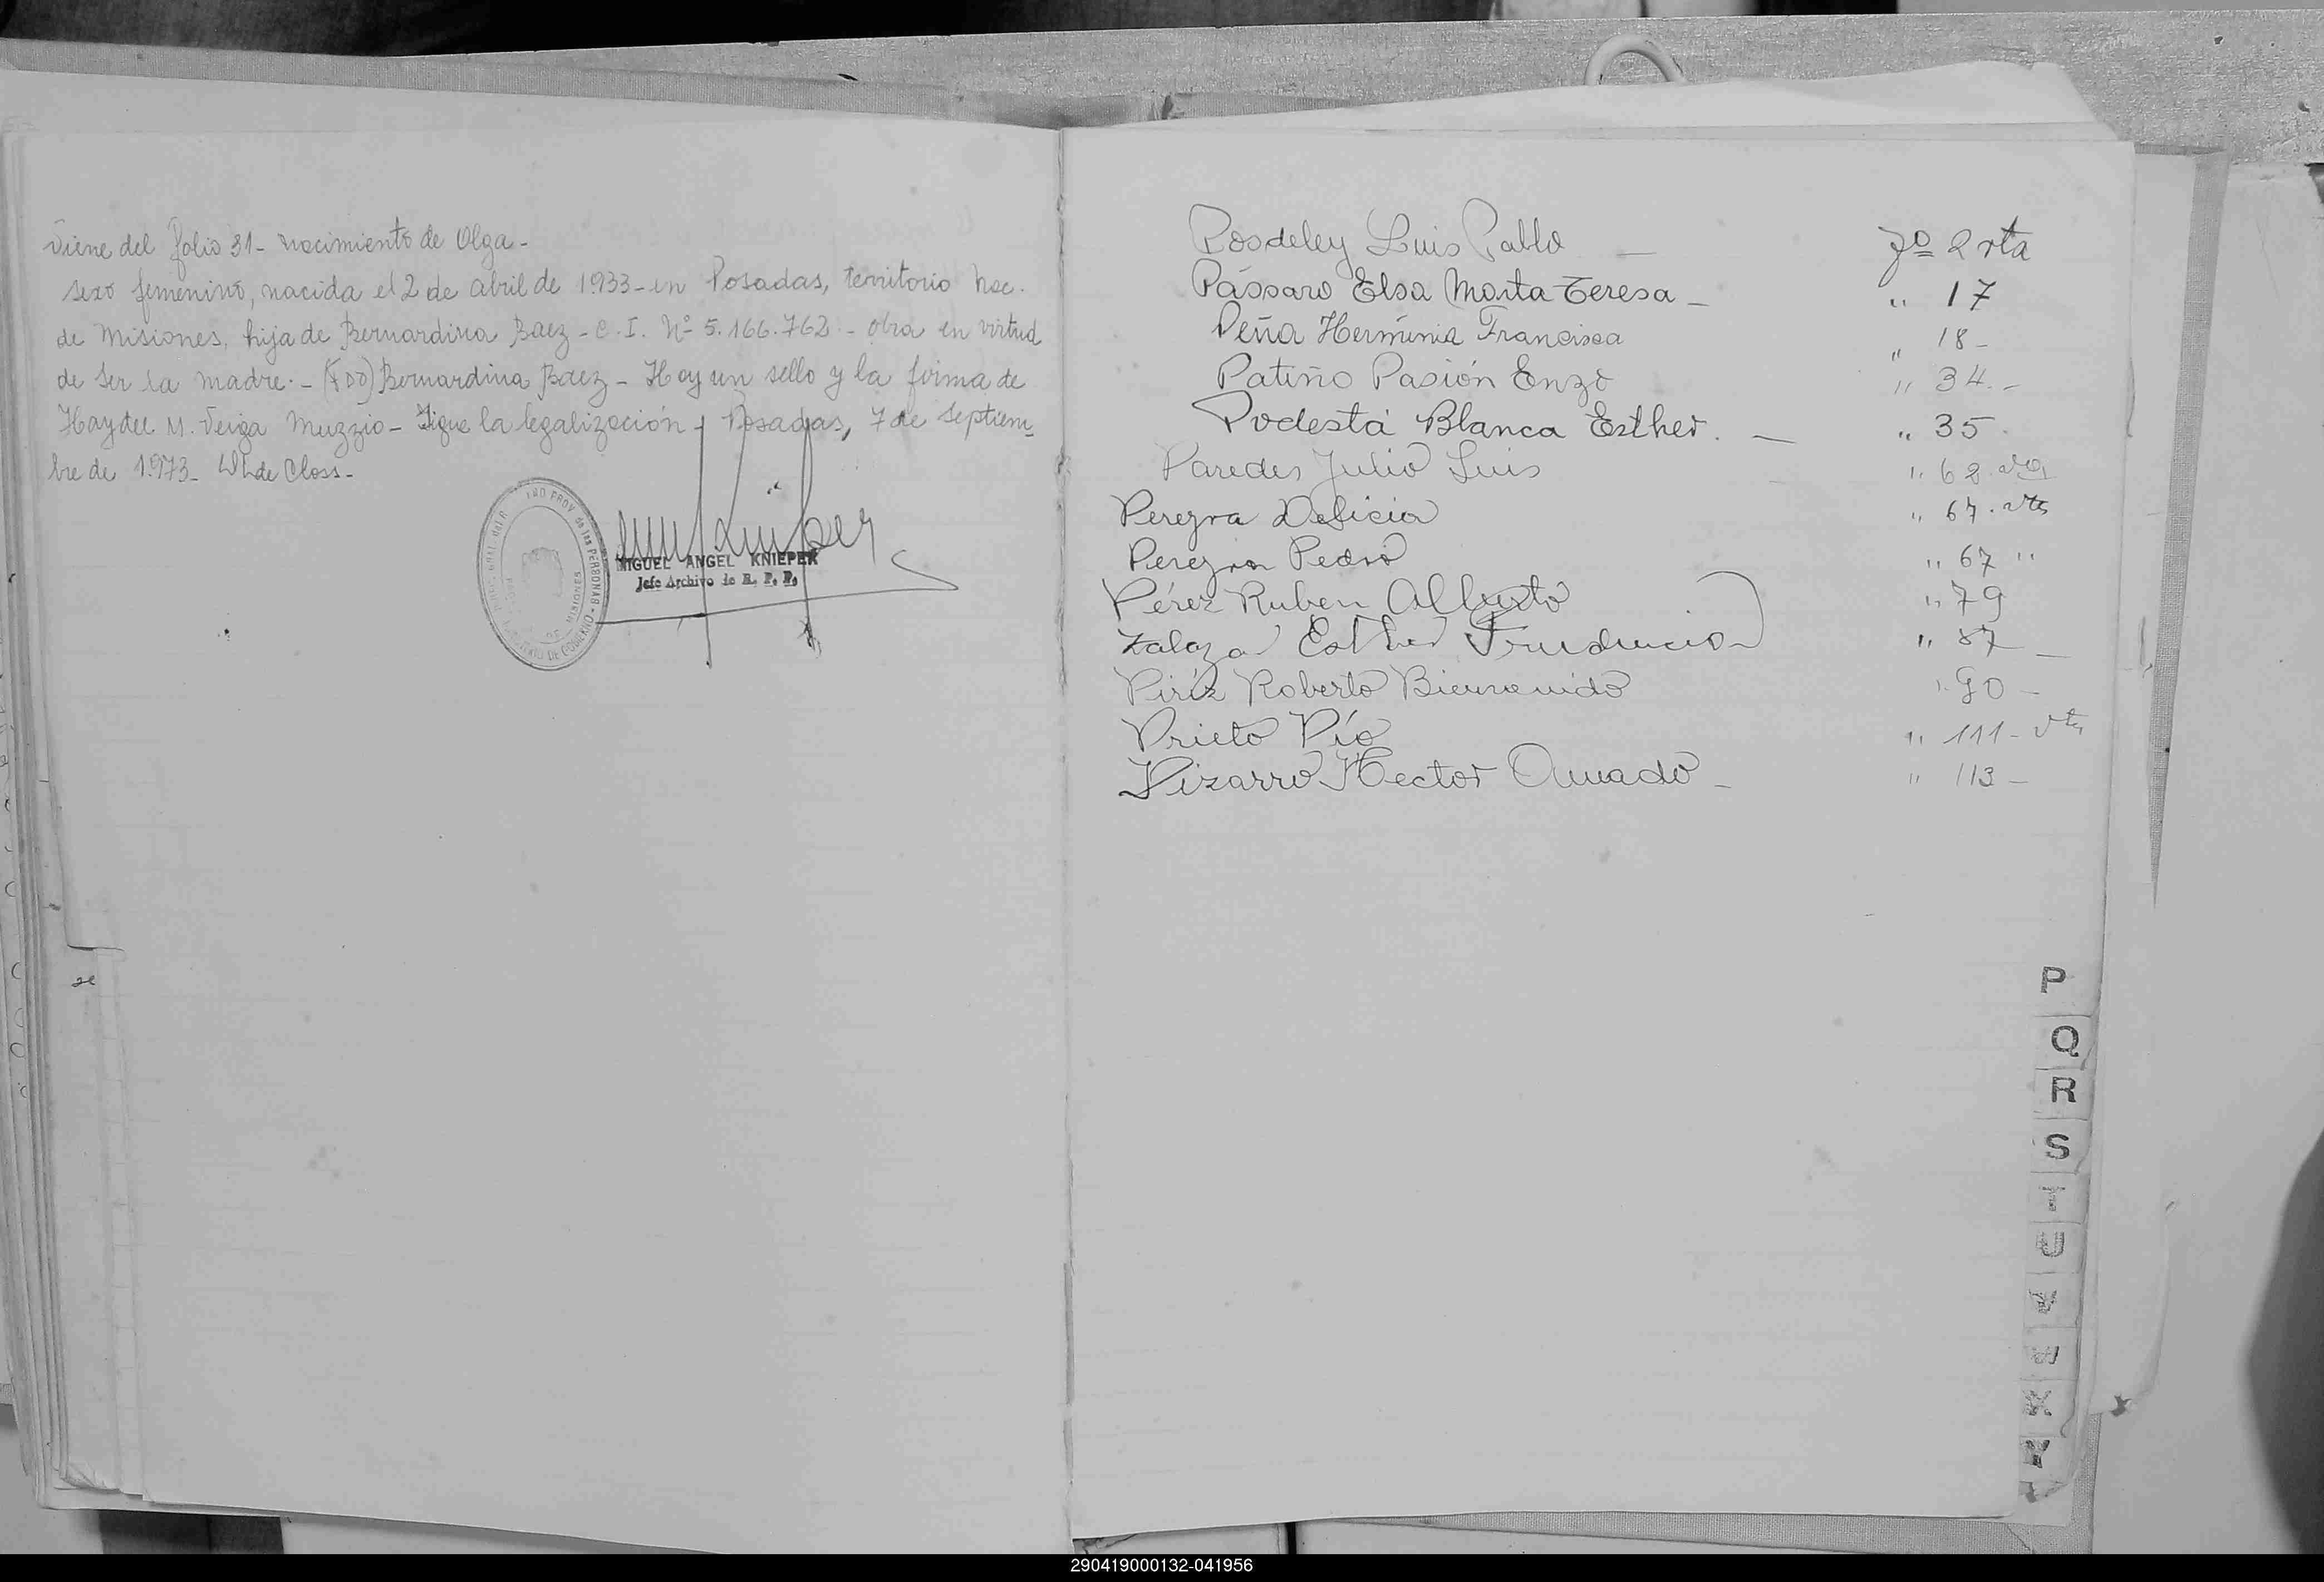 Viene del folio 31- nacimiento de Olga-
sexo femenino, nacida el 2 de abril de 1.933-en Posadas, territorio Nac.
de Misiones, hija de Bernardina Baez-C.I. Nº 5.166.762- obra en virtud
de ser la madre.-(FDO) Bernardina Baez- Hay un sello y la firma de
Haydee M. Veiga Muzzio- Sigue la legalización- Posadas, 7 de Septiem-
bre de 1.973- de Closs-
MIGUEL ANGEL KNIEPER
Jefe Archivo de R. P. P.
PROV. de las PERSONAS
MISIONES
DE GOBIERNO
se
Posdeley Luis Pablo — Fº 2 vta
Pássaro Elsa Marta Teresa - " 17
Peña Herminia Francisca " 18-
Patiño Pasión Enzo " 34.-
Podestá Blanca Esther. — " 35.
Paredes Julio Luis " 62 vta
Pereyra Delicia " 67. vta
Pereyra Pedro " 67 "
Pérez Ruben Alberto " 79
Zalazar Esther Prudencia " 87 -
Piriz Roberto Bienvenido " 90-
Prieto Pío " 111- vta
Pizarro Hector Amado - " 113-
P
Q
R
S
T
U
V
W
X
Y
290419000132-041956